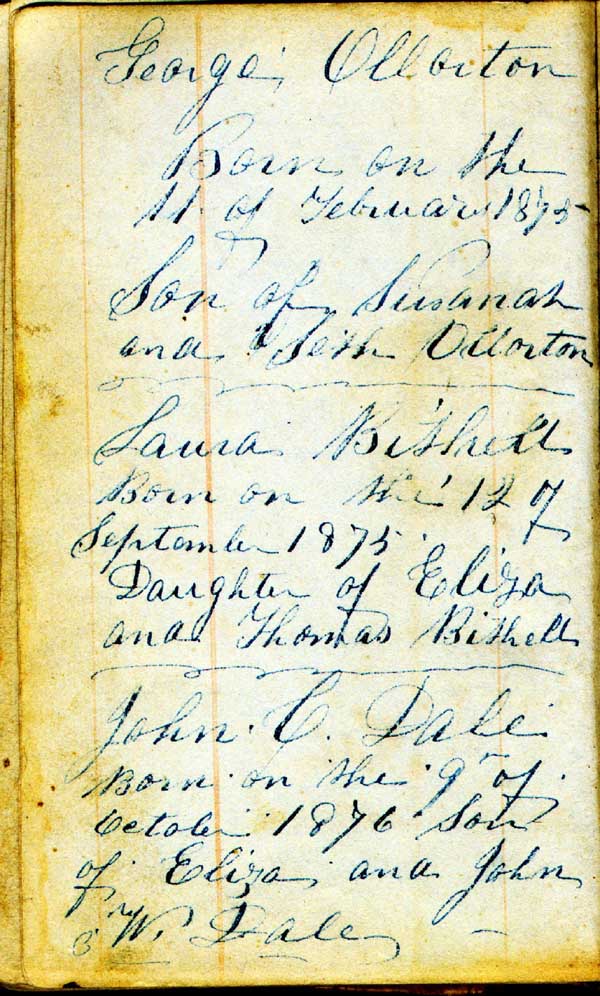 George Ollorton
Born on the
11 of February 1875
Son of Susanah
and Seth Ollorton
Laura Bithell
Born on the 12 of
September 1875.
Daughter of Eliza
and Thomas Bithell
John. C. Dale
Born on the 9th of
October 1876 Son
of Eliza and John
W. Dale